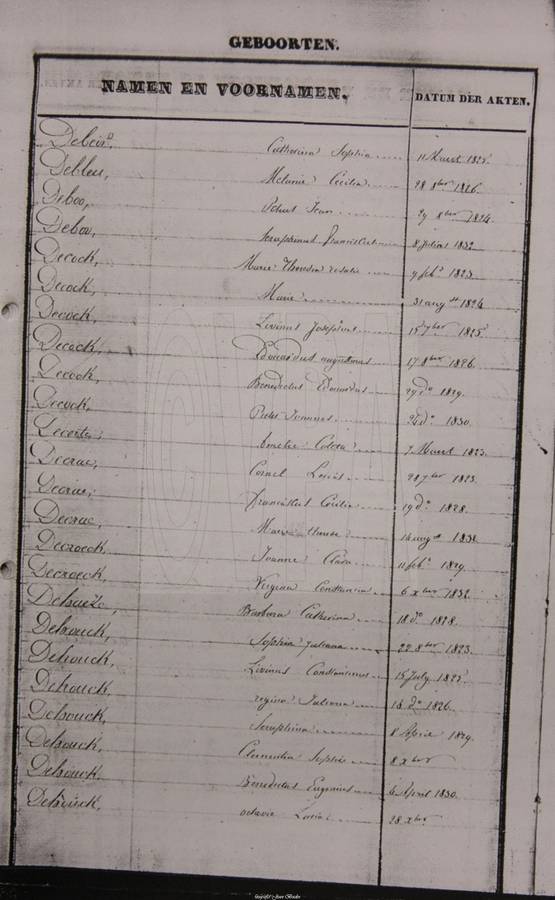 GEBOORTEN.
NAMEN EN VOORNAMEN. DATUM DER AKTEN.
Catharina Sophia 11 Maart 1825.
Debleu, Melanie Cecilia 28 8ber 1826.
Deboo, Jean 29 8ber 1824.
Debou, 8 Julius 1832
Decock, Marie Theresia rosalie 9 feb. 1823.
Decock, Marie 31 aug 1824
Decock, Livinus Josephus 15 7ber 1825
Decock, Edouardus augustinus 17 8ber 1826.
Decock, Benedictus Edouardus 29 do 1829.
Decock, Pieter Joannes do 1830.
Amelie Coleta 7 Maart 1823.
Decrae, Cornel Louis 28 7ber 1823.
Decrae, Cecilia 19 do 1828.
Decrae, Marie Therese 14 aug 1832
Decroeck, Joanna Clara 11 feb. 1829.
Decroeck, Virginie Constantia 6 xber 1832.
Barbara Catharina 18 do 1828.
Dehouck, Sophia Juliana 22 8ber 1823.
Dehouck, Livinus Constantinus 15 July 1825.
Dehouck, regina Juliana 18 do 1826.
Dehouck, Seraphina 8 April 1829.
Dehouck, Clementia Sophie 8 xber
Dehouck, Benedictus Eugenius 6 April 1830.
Dehouck, octavie 28 xber